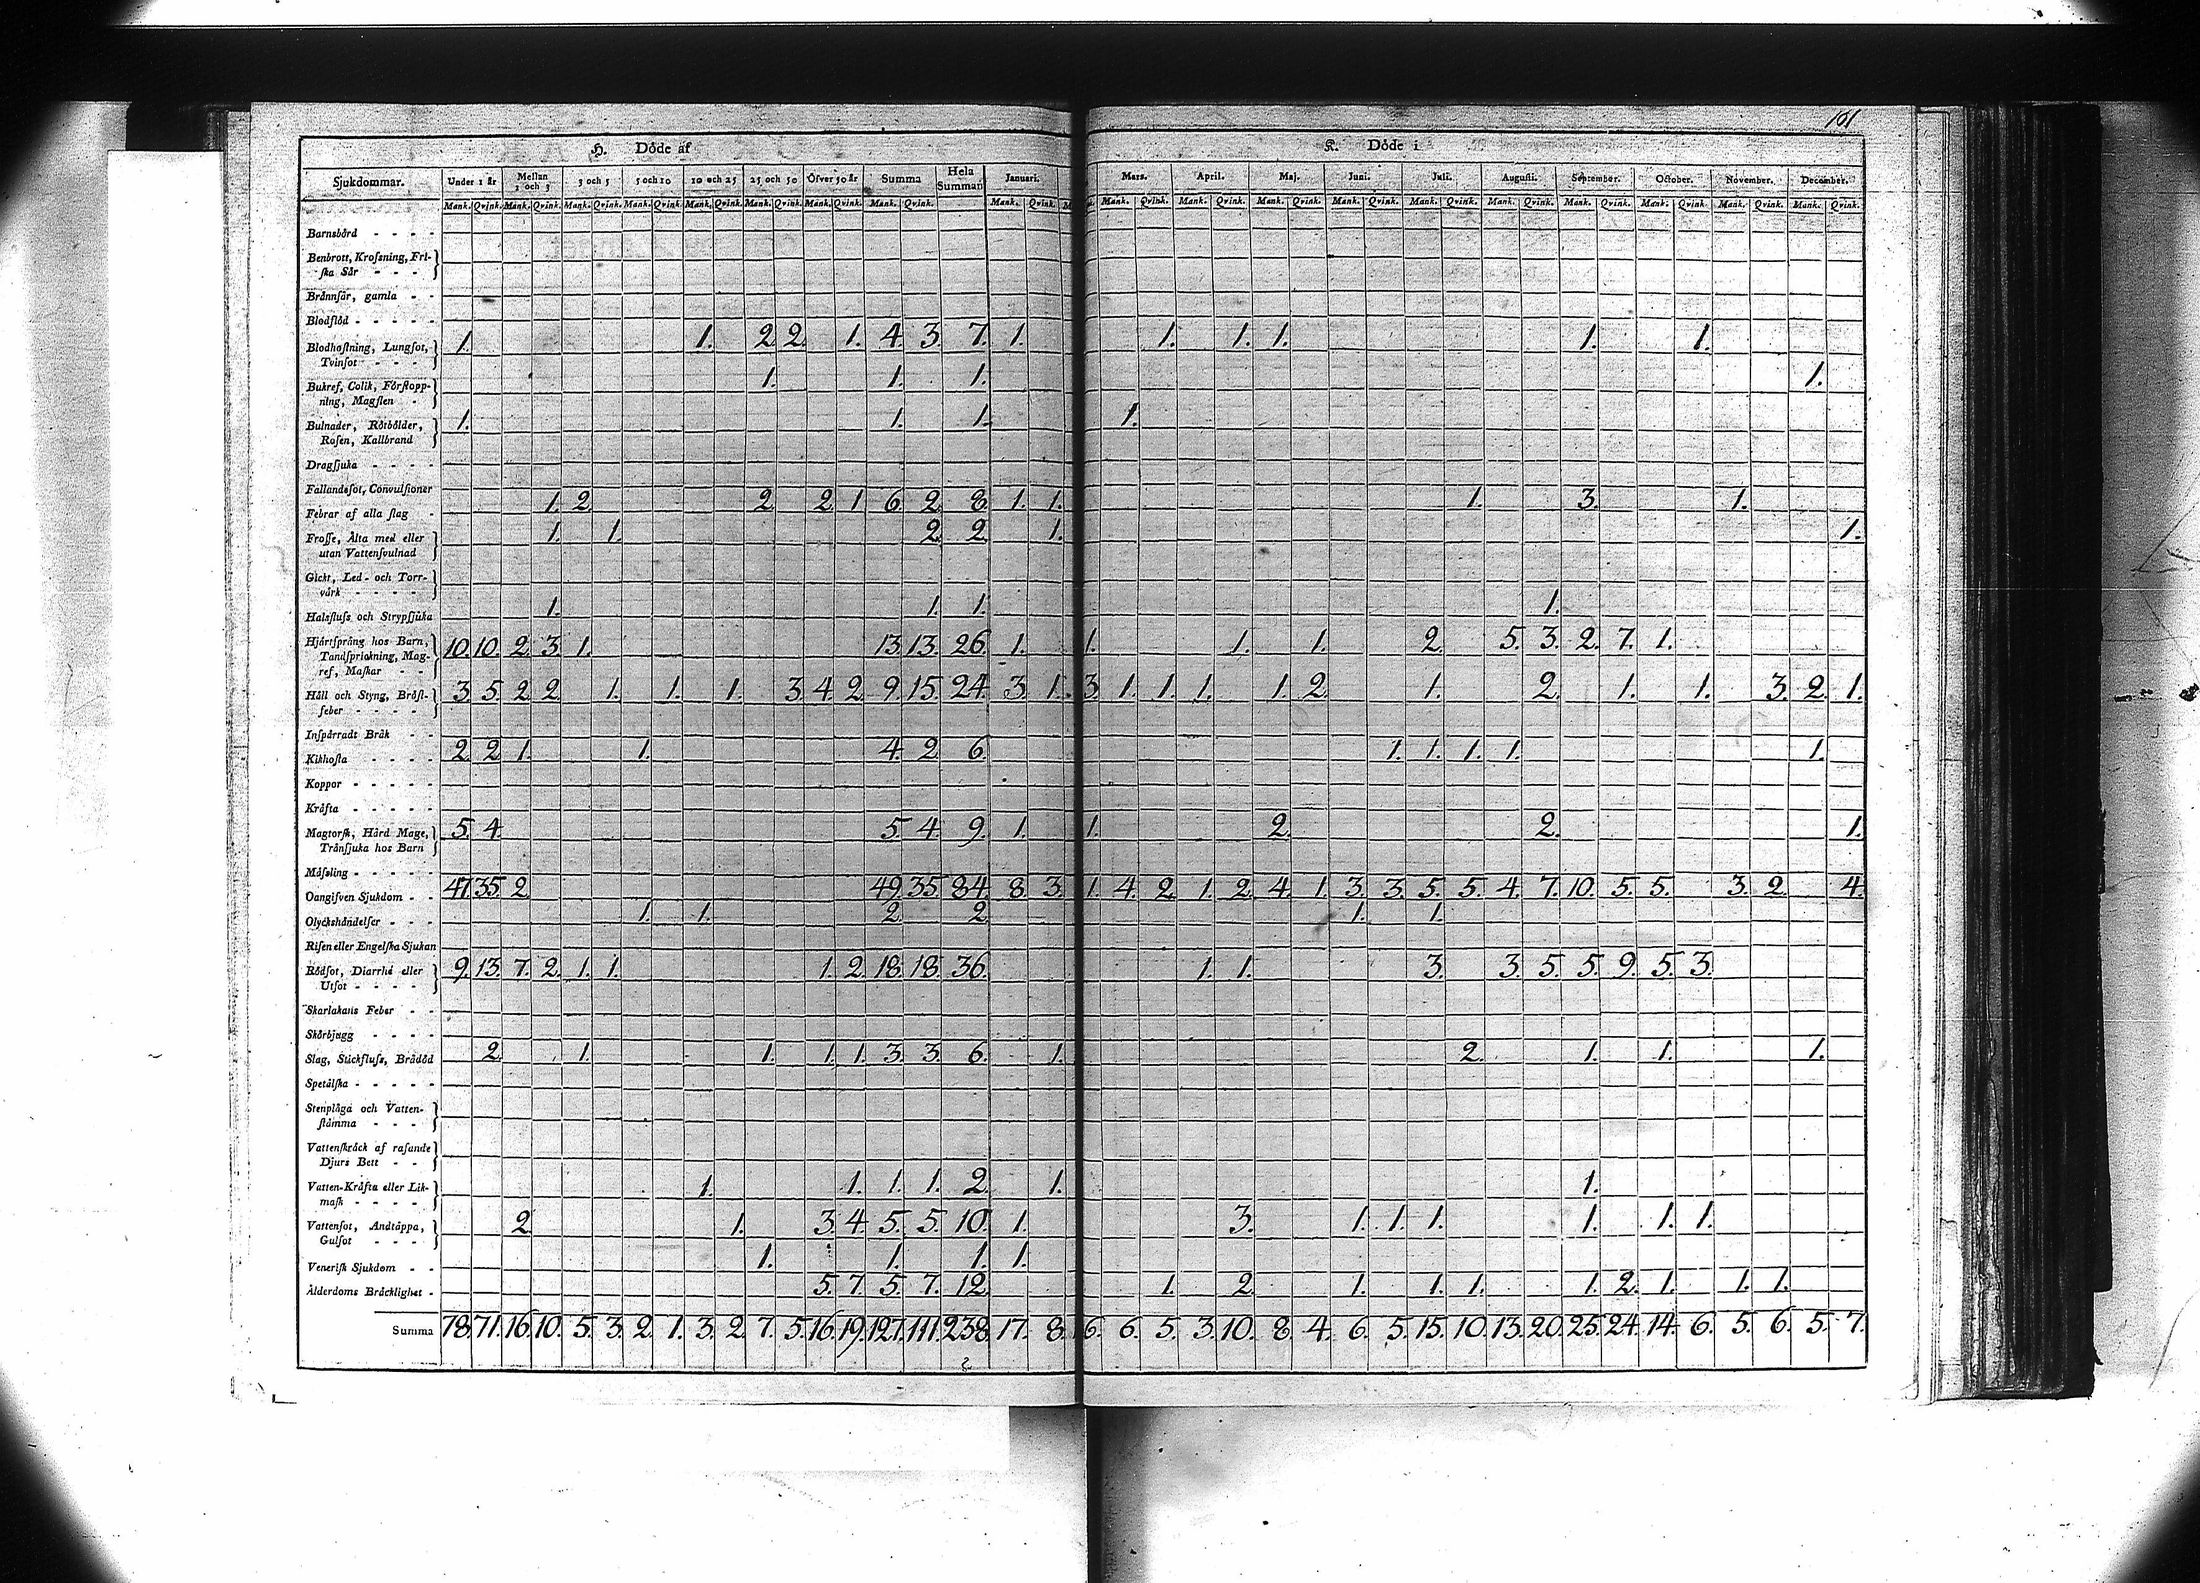 101
H. Döde af K. Döde i
Sjukdommar. Under 1 år Mellan 1 och 3 3 och 5 5 och 10 10 och 25 25 och 50 Öfver 50 år Summa Hela Summan Januari. Mars. April. Maj. Juni. Juli. Augusti. September. October. November. December.
Mank. Qvink. Mank. Qvink. Mank. Qvink. Mank. Qvink. Mank. Qvink. Mank. Qvink. Mank. Qvink. Mank. Qvink. Mank. Qvink. Mank. Qvink. Mank. Qvink. Mank. Qvink. Mank. Qvink. Mank. Qvink. Mank. Qvink. Mank. Qvink. Mank. Qvink. Mank. Qvink. Mank. Qvink.
Barnsbörd - - - -
Benbrott, Krosning, Fri-
ska Sår - - -
Brännsår, gamla - -
Blodflöd - - - - -
Blodhostning, Lungsot, 1. 1. 2 2. 1. 4. 3. 7. 1. 1. 1. 1. 1. 1.
Tvinsot - - -
Bukref, Colik, Förstopp- 1. 1. 1. 1.
ning, Magsten -
Bulnader, Rötbölder, 1. 1. 1. 1.
Rosen, Kallbrand
Dragsjuka - - - -
Fallandesot, Convulsioner
Febrar af alla slag - 1. 2 2 2 1 6 2 8 1. 1. 1. 3. 1.
Frosse, Älta med eller 1. 1. 2. 2. 1. 1.
utan Vattensvulnad
Gickt, Led- och Torr-
värk - - - -
Halsfluss och Strypsjuka 1. 1. 1. 1.
Hjärtsprång hos Barn, 10. 10. 2. 3. 1. 13. 13. 26. 1. 1. 1. 1. 2. 5. 3. 2. 7. 1.
Tandsprickning, Mag-
ref, Maskar - -
Håll och Styng, Bröst- 3. 5. 2 2. 1. 1. 1. 3. 4. 2. 9. 15. 24. 3. 1. 3. 1. 1. 1. 1. 2. 1. 2. 1. 1. 3. 2. 1.
feber - - - -
Inspärradt Bråk - -
Kikhosta - - - - 2. 2. 1. 1. 4. 2. 6. 1. 1. 1. 1. 1.
Koppor - - - - -
Kräfta - - - - -
Magtorsk, Hård Mage, 5. 4. 5. 4. 9. 1. 1. 2. 2. 1.
Trånsjuka hos Barn
Måssling - - - - -
Oangifven Sjukdom - - 47. 35. 2. 49. 35. 84. 8. 3. 1. 4. 2. 1. 2. 4. 1. 3. 3. 5. 5. 4. 7. 10. 5. 5. 3. 2. 4.
Olyckshändelser - - 1. 1. 2. 2. 1. 1.
Risen eller Engelska Sjukan
Rödsot, Diarrhé eller 9. 13. 7. 2. 1. 1. 1. 2. 18. 18. 36. 1. 1. 3. 3. 5. 5. 9. 5. 3.
Utsot - - - -
Skarlakans Feber - -
Skörbjugg - - - -
Slag, Stickfluss, Brådöd 2. 1. 1. 1. 1. 3. 3. 6. 1. 2. 1. 1. 1.
Spetälska - - - - -
Stenplåga och Vatten-
stämma - - -
Vattenskräck af rasande
Djurs Bett - -
Vatten-Kräfta eller Lik- 1. 1. 1. 1. 2. 1. 1.
mask - - - -
Vattensot, Andtäppa, 2. 1. 3. 4. 5. 5. 10. 1. 3. 1. 1. 1. 1. 1. 1.
Gulsot - - -
Venerisk Sjukdom - - 1. 1. 1. 1.
Ålderdoms Bräcklighet - 5. 7. 5. 7. 12. 1. 2. 1. 1. 1. 1. 2. 1. 1. 1.
Summa 78. 71. 16. 10. 5. 3. 2. 1. 3. 2. 7. 5. 16. 19. 127. 111. 238. 17. 8. 6. 6. 5. 3. 10. 8. 4. 6. 5. 15. 10. 13. 20. 25. 24. 14. 6. 5. 6. 5. 7.